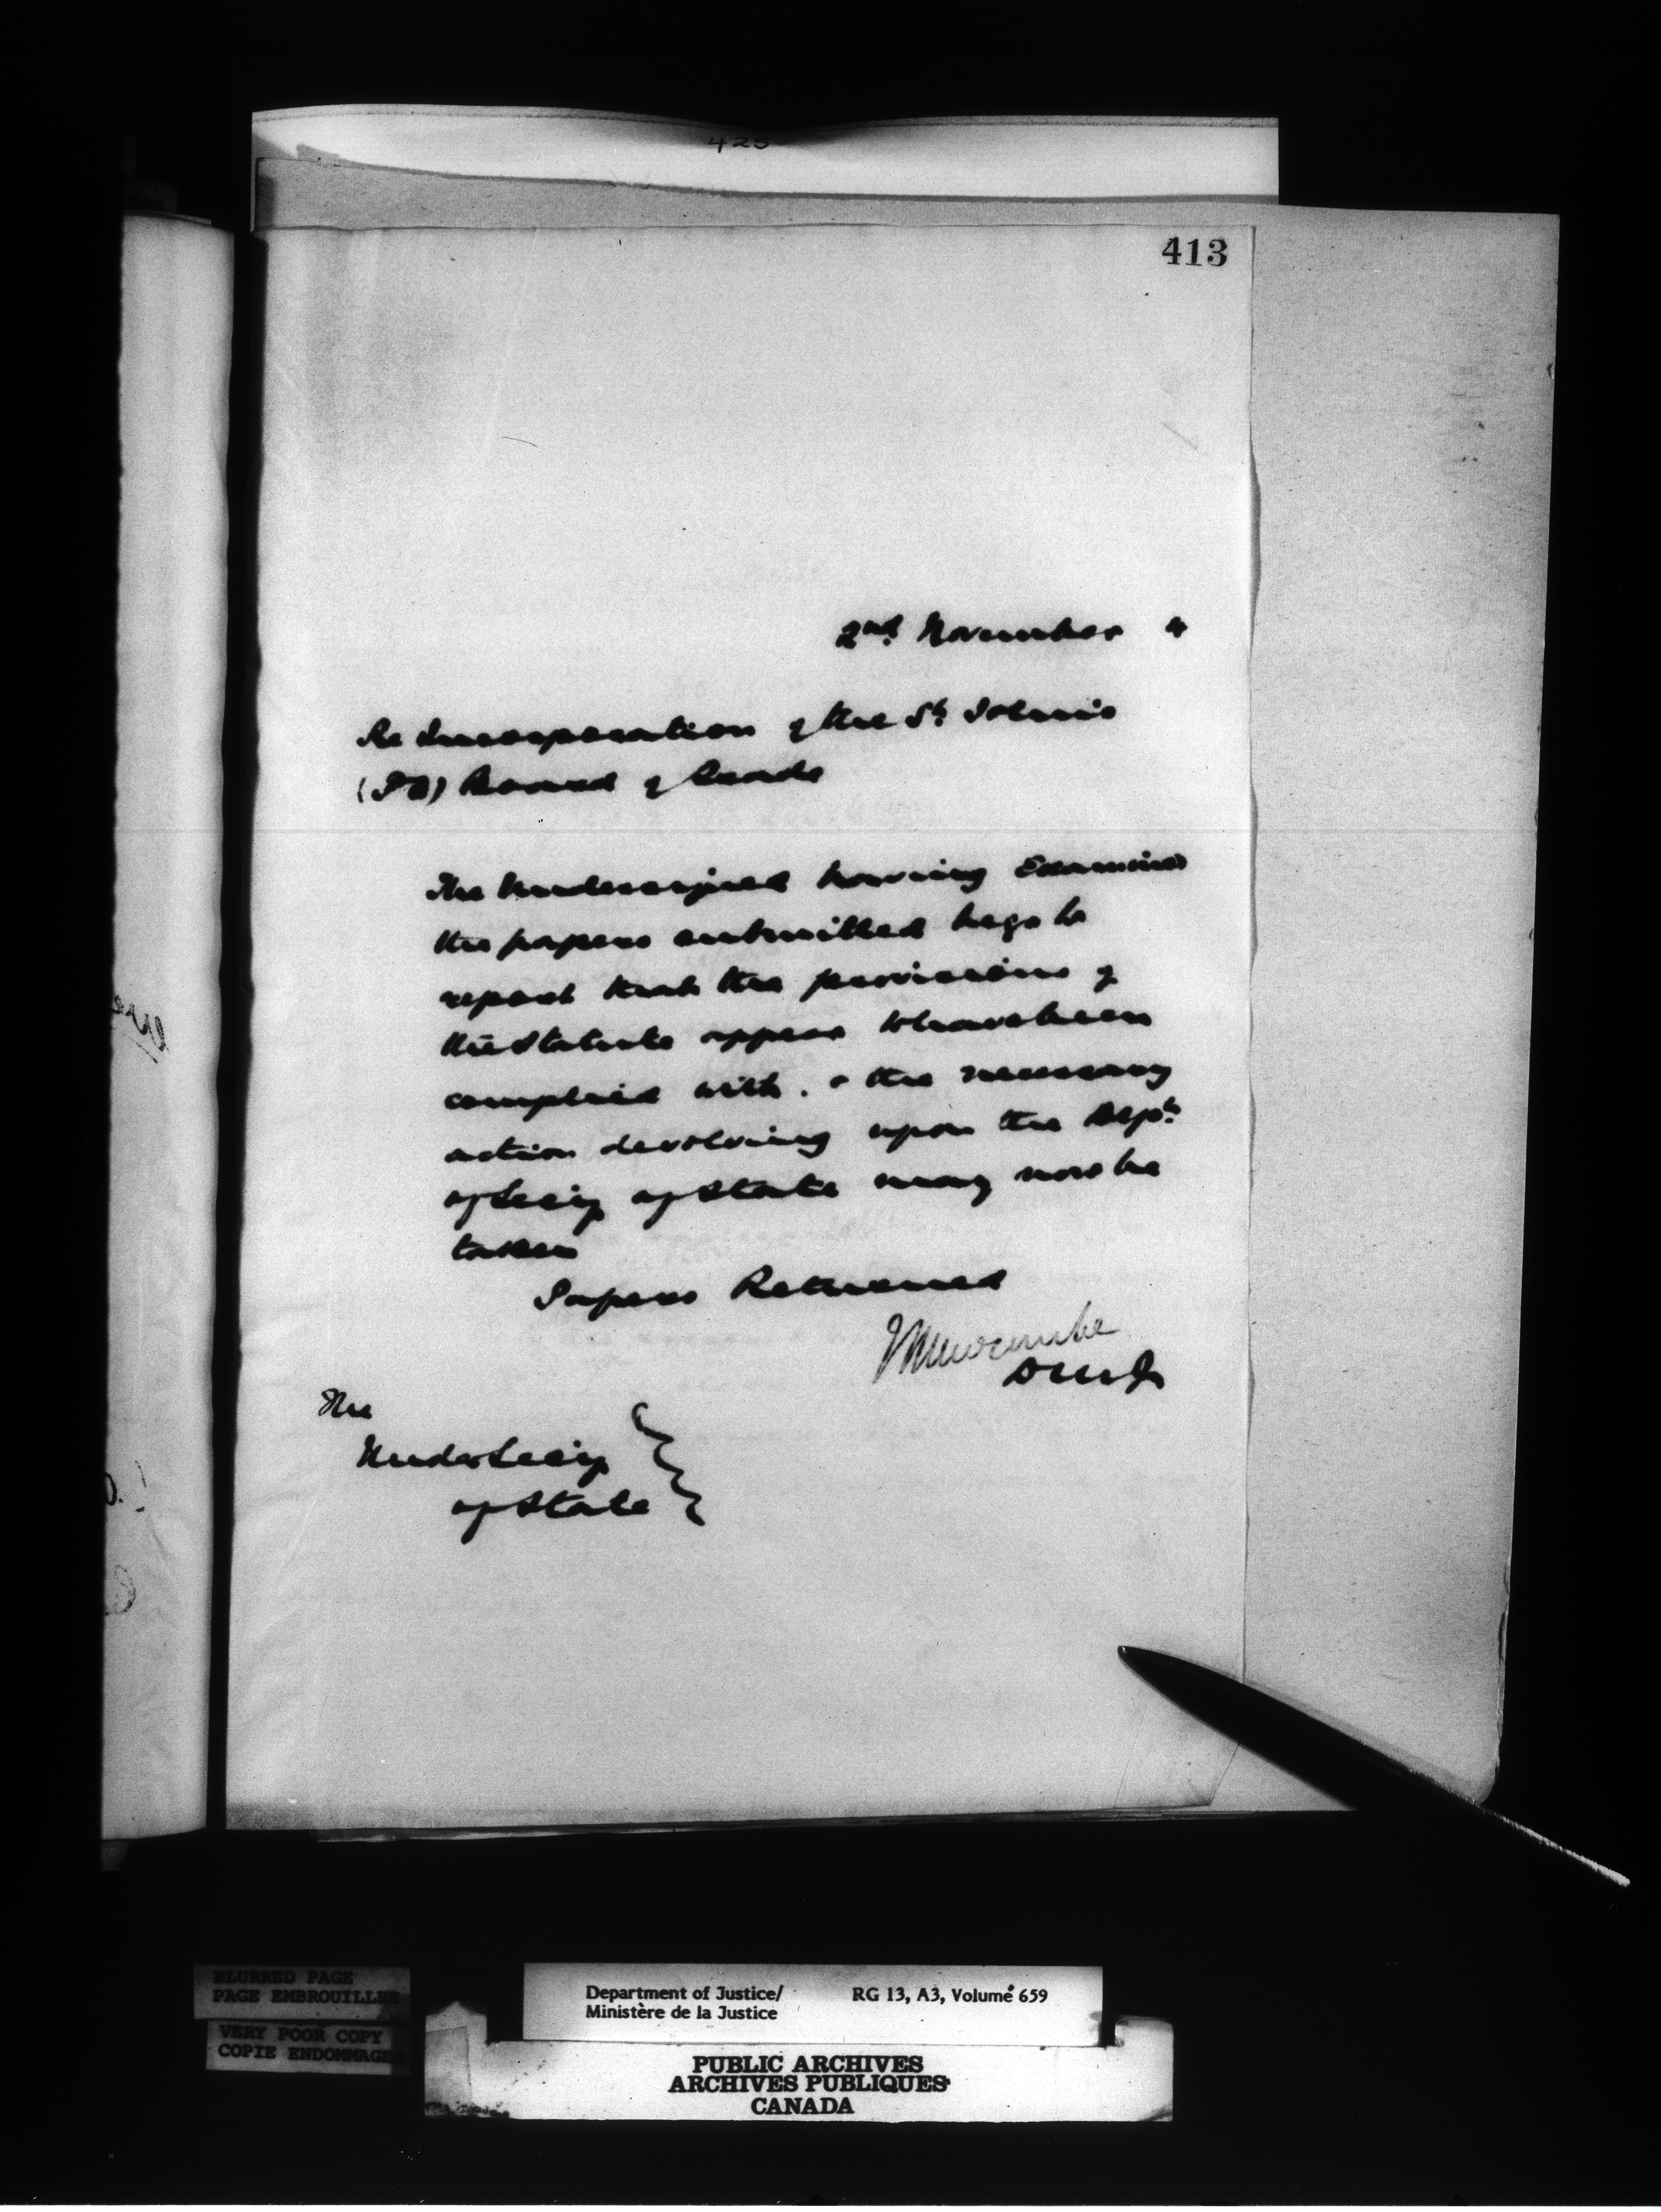 425
413
2nd November 4
Re Incorporation of the St John's
(PQ) Board of Trade
The Undersigned having Examined
the papers submitted begs to
report that the provisions of
the Statute appear to have been
complied with. & the necessary
action devolving upon the Dept.
of Secy of State may now be
taken
Papers Returned
Newcombe
DMJ
The
Under Secy
of State
BLURRED PAGE
PAGE EMBROUILLEE
VERY POOR COPY
COPIE ENDOMMAGE
Department of Justice/ RG 13, A3, Volume 659
Ministère de la Justice
PUBLIC ARCHIVES
ARCHIVES PUBLIQUES
CANADA